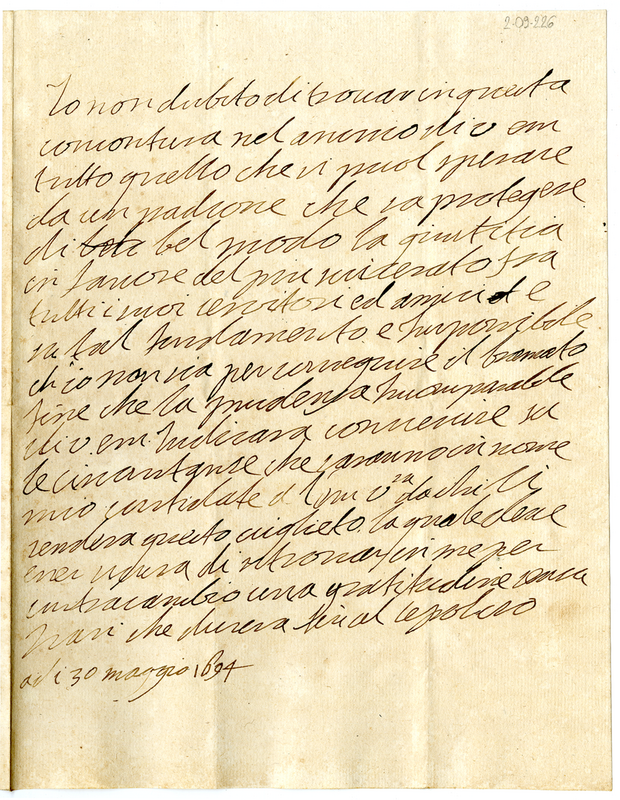 2-09-226
Io non dubito di trovar in questa
coniontura nel animo di v em
tutto quello che si puol sperare
da un padrone che sa protegere
di bel modo la giustitia
in favore del piu sviscerato fra
tutti i suoi servitori ed amici e
su tal fundamento e Imposibile
ch io non sia per conseguire il bramato
fine che la prudensa Incomparabile
di v em Iudicara convenire su
le instanse che saranno in nome
mio confidate a V em da chi li
rendera questo viglieto la quale deve
esser sicura di ritrovar in me per
contracambio una gratitudine sensa
pari che durera fin al sepolcro
adi 30 maggio 1694